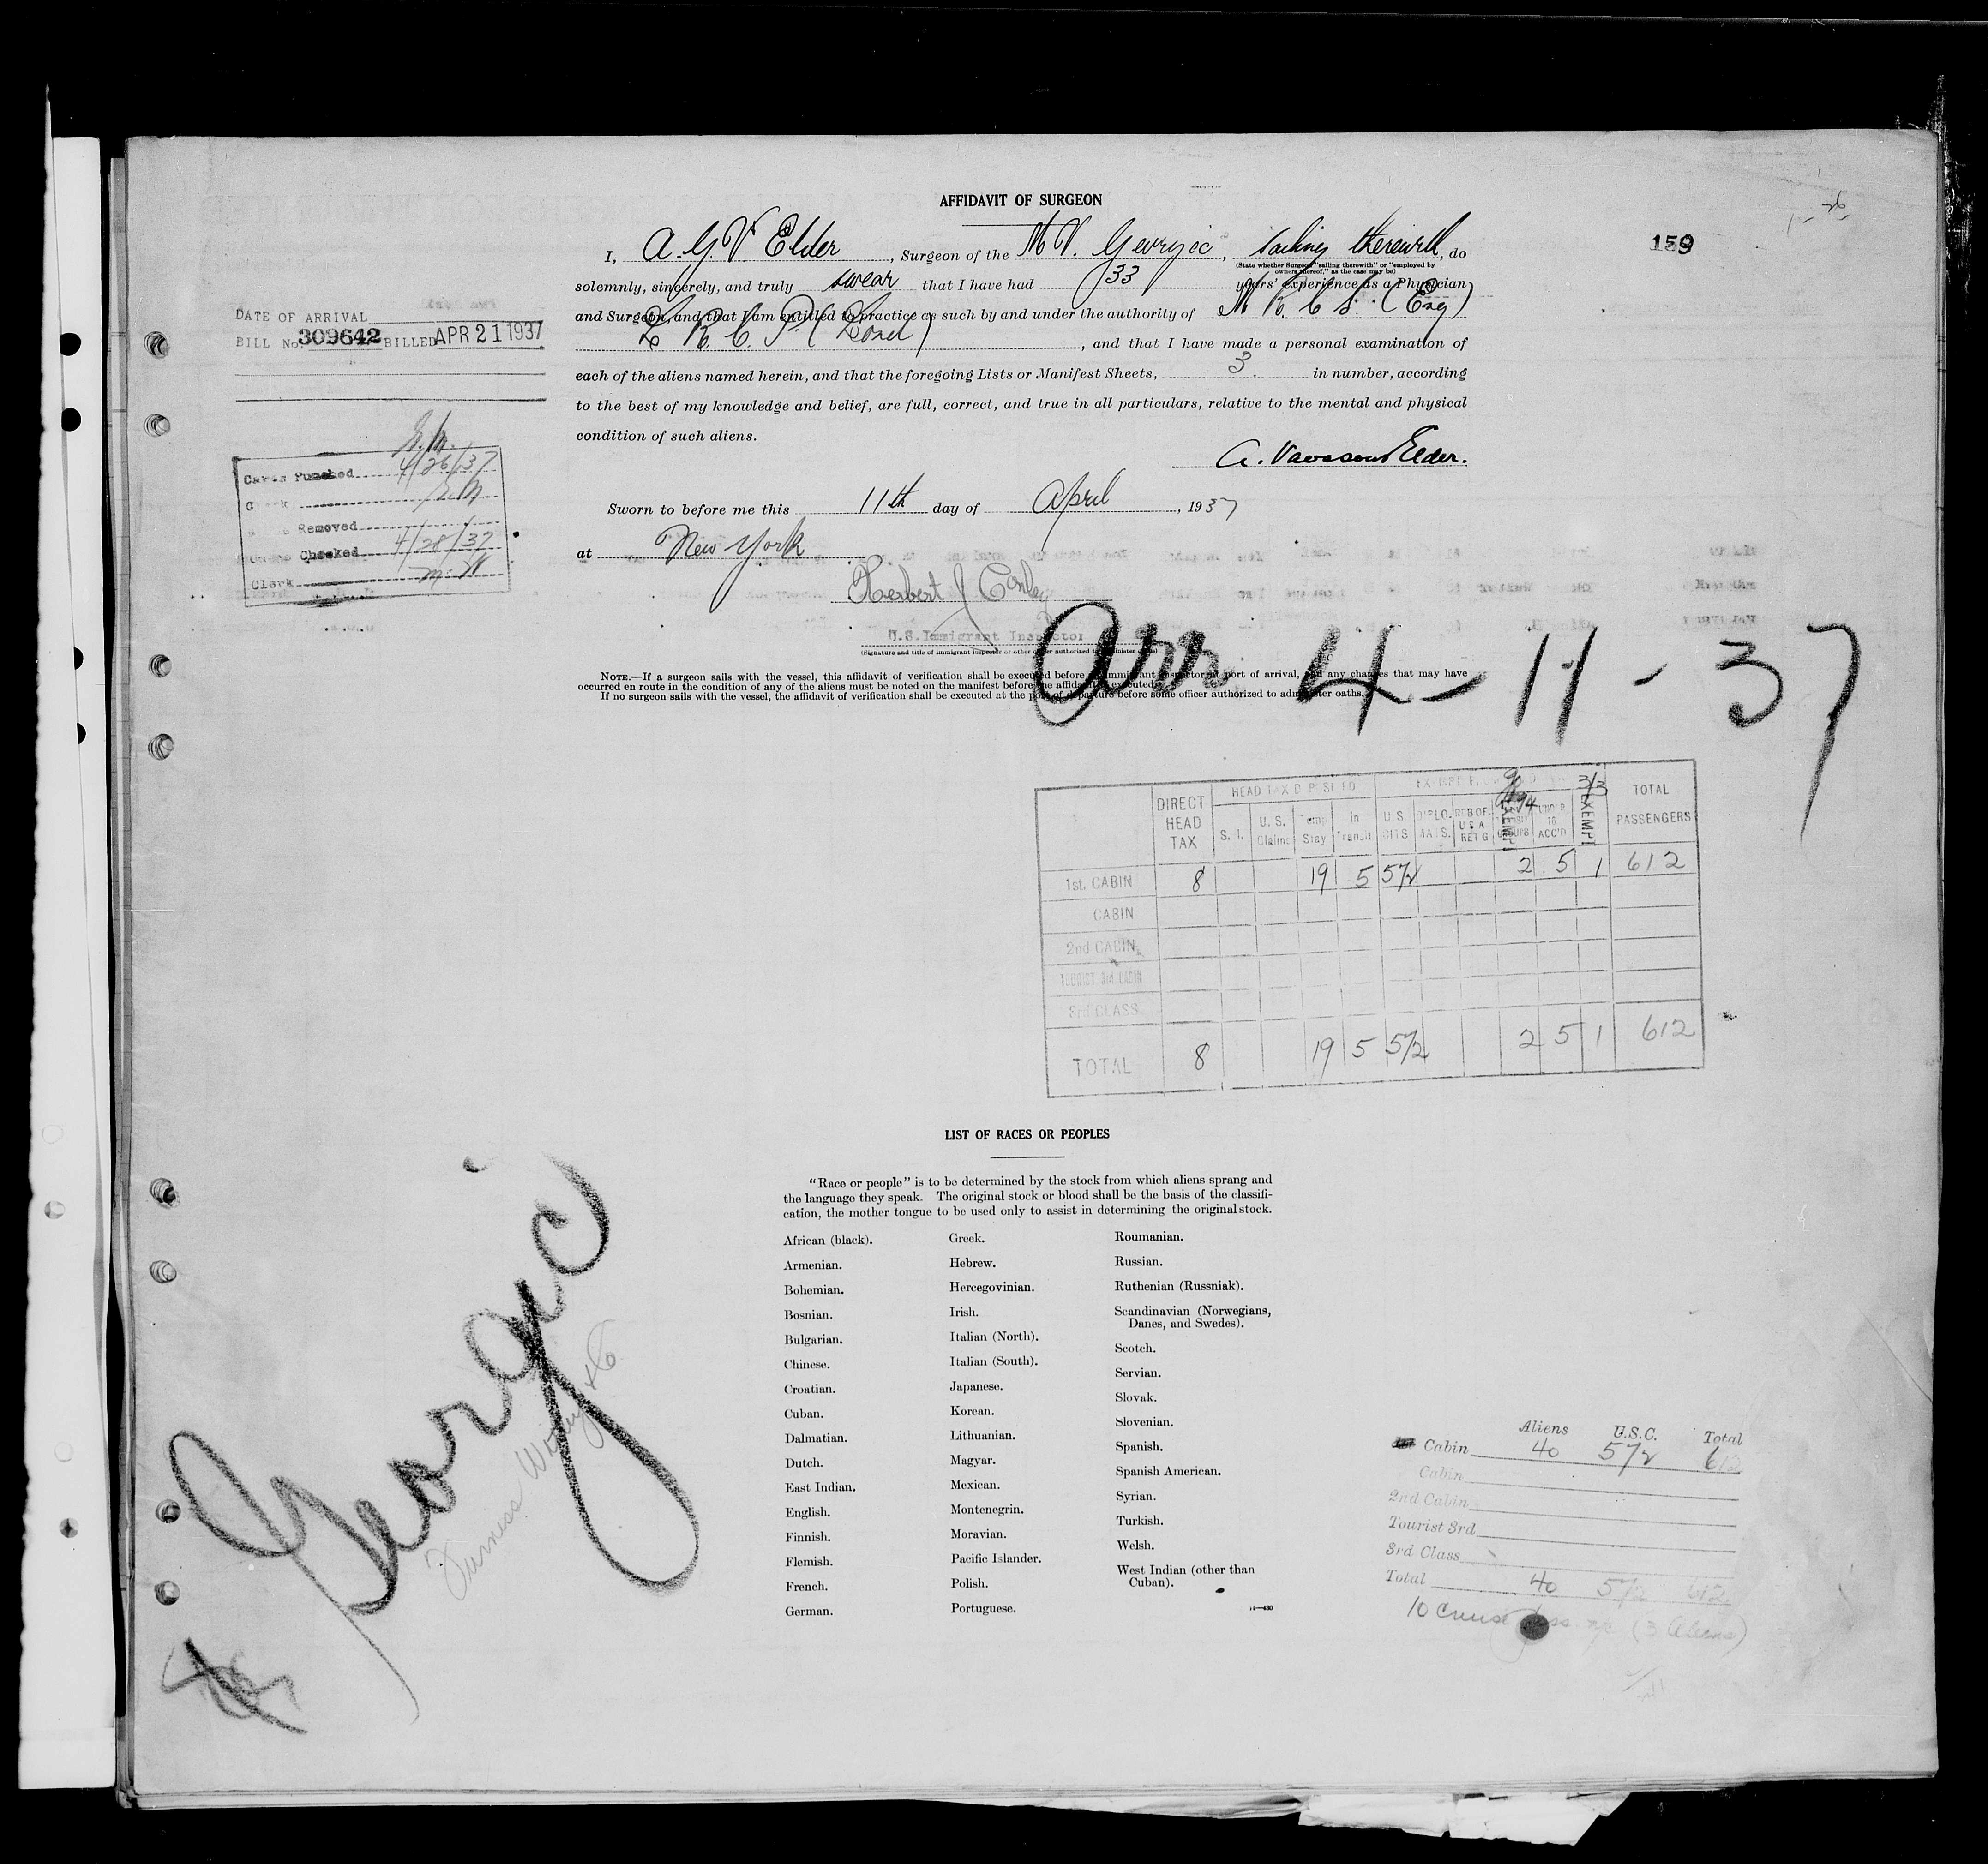 AFFIDAVIT OF SURGEON
159
I, A. G. V. Elder, Surgeon of the M V. Georgic, sailing therewith, do
(State whether Surgeon "sailing therewith" or "employed by
owners thereof," as the case may be)
solemnly, sincerely, and truly swear that I have had 33 years' experience as a Physician
and Surgeon, and that I am entitled to practice as such by and under the authority of M R C S. (Eng)
L R. C. P. (Lond), and that I have made a personal examination of
each of the aliens named herein, and that the foregoing Lists or Manifest Sheets, 3. in number, according
to the best of my knowledge and belief, are full, correct, and true in all particulars, relative to the mental and physical
condition of such aliens.
A. Vavasour Elder.
Sworn to before me this 11th day of April, 1937
at New York
Herbert J Conley
U.S. Immigrant Inspector
(Signature and title of immigrant inspector or other officer authorized to administer oaths)
NOTE.—If a surgeon sails with the vessel, this affidavit of verification shall be executed before immigrant inspector at port of arrival, and any changes that may have
occurred en route in the condition of any of the aliens must be noted on the manifest before the affidavit is executed.
If no surgeon sails with the vessel, the affidavit of verification shall be executed at the port of departure before some officer authorized to administer oaths.
DATE OF ARRIVAL
BILL No. 309642 BILLED APR 21 1937
Cards Punched 4/26/37
Clerk
Removed
Checked 4/28/37
Clerk
Arr 4-11-37
DIRECT HEAD TAX
HEAD TAX DEPOSITED
TOTAL PASSENGERS
S. I. U.S. Claims Temp Stay in Transit U.S. CITS. DIPLOMATS. UNDER 16 ACC'D EXEMPT
1st. CABIN 8 19 5 572 2 5 1 612
CABIN
2nd CABIN
TOURIST 3rd CABIN
3rd CLASS
TOTAL 8 19 5 572 2 5 1 612
LIST OF RACES OR PEOPLES
"Race or people" is to be determined by the stock from which aliens sprang and
the language they speak. The original stock or blood shall be the basis of the classifi-
cation, the mother tongue to be used only to assist in determining the original stock.
African (black).
Armenian.
Bohemian.
Bosnian.
Bulgarian.
Chinese.
Croatian.
Cuban.
Dalmatian.
Dutch.
East Indian.
English.
Finnish.
Flemish.
French.
German.
Greek.
Hebrew.
Hercegovinian.
Irish.
Italian (North).
Italian (South).
Japanese.
Korean.
Lithuanian.
Magyar.
Mexican.
Montenegrin.
Moravian.
Pacific Islander.
Polish.
Portuguese.
Roumanian.
Russian.
Ruthenian (Russniak).
Scandinavian (Norwegians,
Danes, and Swedes).
Scotch.
Servian.
Slovak.
Slovenian.
Spanish.
Spanish American.
Syrian.
Turkish.
Welsh.
West Indian (other than
Cuban).
Georgic
Furness Withy & Co
Aliens U.S.C. Total
Cabin 40 572 612
Cabin
2nd Cabin
Tourist 3rd
3rd Class
Total 40 572 612
10 cruise (3 Aliens)